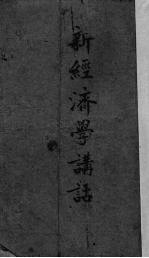 新經濟學講話